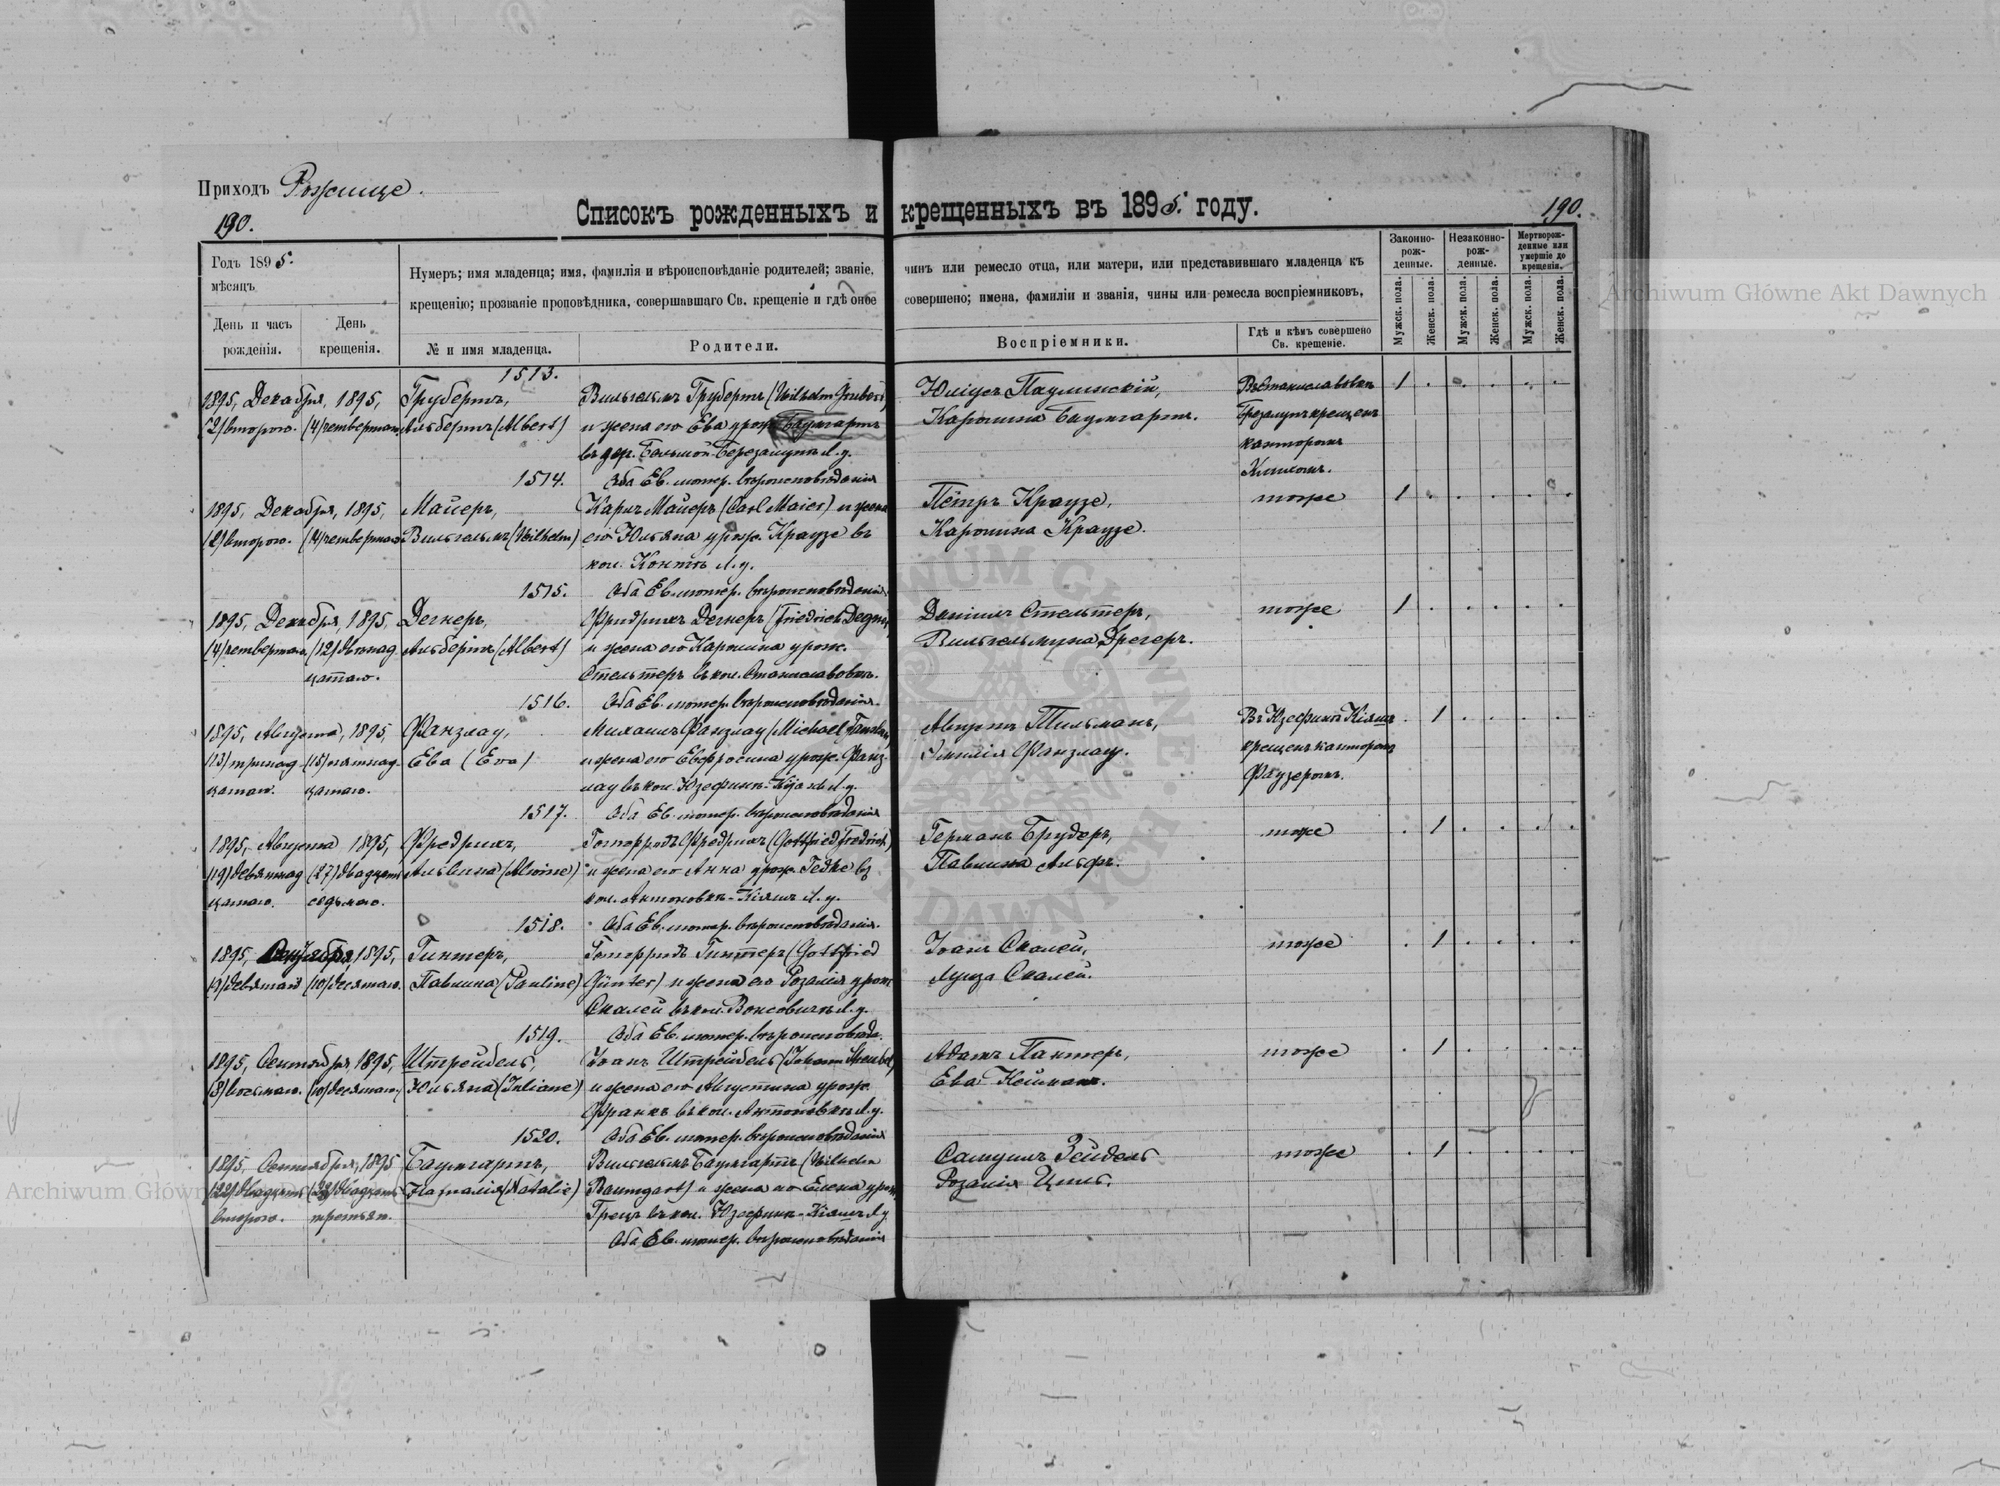 Приходъ Рожище.
190.
Списокъ рожденныхъ и крещенныхъ въ 1895. году.
190.
Годъ 1895.
мѣсяцъ
День и часъ рожденія.
День крещенія.
Нумеръ; имя младенца; имя, фамилія и вѣроисповѣданіе родителей; званіе, чинъ или ремесло отца, или матери, или представившаго младенца къ
крещенію; прозваніе проповѣдника, совершавшаго Св. крещеніе и гдѣ оное совершено; имена, фамиліи и званія, чины или ремесла воспріемниковъ.
№ и имя младенца.
Родители.
Воспріемники.
Гдѣ и кѣмъ совершено Св. крещеніе.
Законно-рожденные.
Незаконно-рожденные.
Мертворожденные или умершіе до крещенія.
Мужск. пола.
Женск. пола.
Мужск. пола.
Женск. пола.
Мужск. пола.
Женск. пола.
1513.
1895, Декабря, 1895,
(2) второго. (4) четвертаго
Грубертъ,
Альбертъ (Albert)
Вильгельмъ Грубертъ (Wilhelm Grubert)
и жена его Ева урож. Баумгартъ
въ дер. Большой-Березалупъ Л.у.
Оба Ев. лютер. вѣроисповѣданія
Юліусъ Паулинскій,
Каролина Баумгартъ.
крещенъ
канторомъ
1 . . . . .
1514.
1895, Декабря, 1895,
(2) второго. (4) четвертаго
Майеръ,
Вильгельмъ (Wilhelm)
Карлъ Майеръ (Carl Maier) и жена
его Юльяна урож. Краузе въ
кол. Л.у.
Оба Ев. лютер. вѣроисповѣданія
Пётръ Краузе,
Каролина Краузе.
тоже
1 . . . . .
1515.
1895, Декабря, 1895
(4) четвертаго (12) двѣнад
цатаго.
Дегнеръ,
Альбертъ (Albert)
Фридрихъ Дегнеръ (Friedrich Degner)
и жена его Каролина урож.
Стельтеръ въ кол. Станиславовкѣ.
Оба Ев. лютер. вѣроисповѣданія.
Даніилъ Стельтеръ,
Вильгельмина Дрегеръ.
тоже
1 . . . . .
1516.
1895, Августа, 1895,
(13) тринад (15) пятнад
цатаго. цатаго.
Фанзлау,
Ева (Eva)
Михаилъ Фанзлау (Michael Fanslau)
и жена его Евфросина урож. Фанз
лау въ кол. Юзефинъ- Л.у.
Оба Ев. лютер. вѣроисповѣданія
Августъ Тильманъ,
Эмилія Фанзлау.
Въ Юзефинъ-Кіяшъ
крещенъ канторомъ
Фаузеромъ.
. 1 . . . .
1517.
1895, Августа 1895,
(19) девятнад (27) двадцать
цатаго. седьмого.
Фредрихъ,
Альвина (Alwine)
Готфридъ Фредрихъ (Gottfried Fredrich)
и жена его Анна урож. Гедке въ
кол. Антоновкѣ-Кіяшъ Л.у.
Оба Ев. лютер. вѣроисповѣданія.
Германъ Брудеръ,
Павлина Альфъ.
тоже
. 1 . . . .
1518.
1895, 1895,
(9) девятаго (10) десятаго.
Гинтеръ,
Павлина (Pauline)
Готфридъ Гинтеръ (Gottfried
Günter) и жена его Розалія урож.
Скалей въ кол. Л.у.
Оба Ев. лютер. вѣроисповѣда.
Іоанъ Скалей,
Луиза Скалей.
тоже
. 1 . . . .
1519.
1895, Сентября, 1895,
(8) восьмаго. (10) десятаго
Штрейбель,
Юльяна (Juliane)
Іоанъ Штрейбель (Johann Streubel)
и жена его Августина урож.
Франкъ въ кол. Антоновкѣ Л.у.
Оба Ев. лютер. вѣроисповѣданія
Адамъ Пантеръ,
Ева Нейманъ.
тоже
. 1 . . . .
1520.
1895, Сентября, 1895
(22) двадцать (23) двадцать
второго. третьяго.
Баумгартъ,
Наталія (Natalie)
Вильгельмъ Баумгартъ (Wilhelm
Baumgart) и жена его Елена урож.
Грецъ въ кол. Юзефинъ-Кіяшъ Л.у.
Оба Ев. лютер. вѣроисповѣданія
Самуилъ Зейдель
Розалія Циль.
тоже
. 1 . . . .
Archiwum Główne Akt Dawnych
Archiwum Główne Akt Dawnych